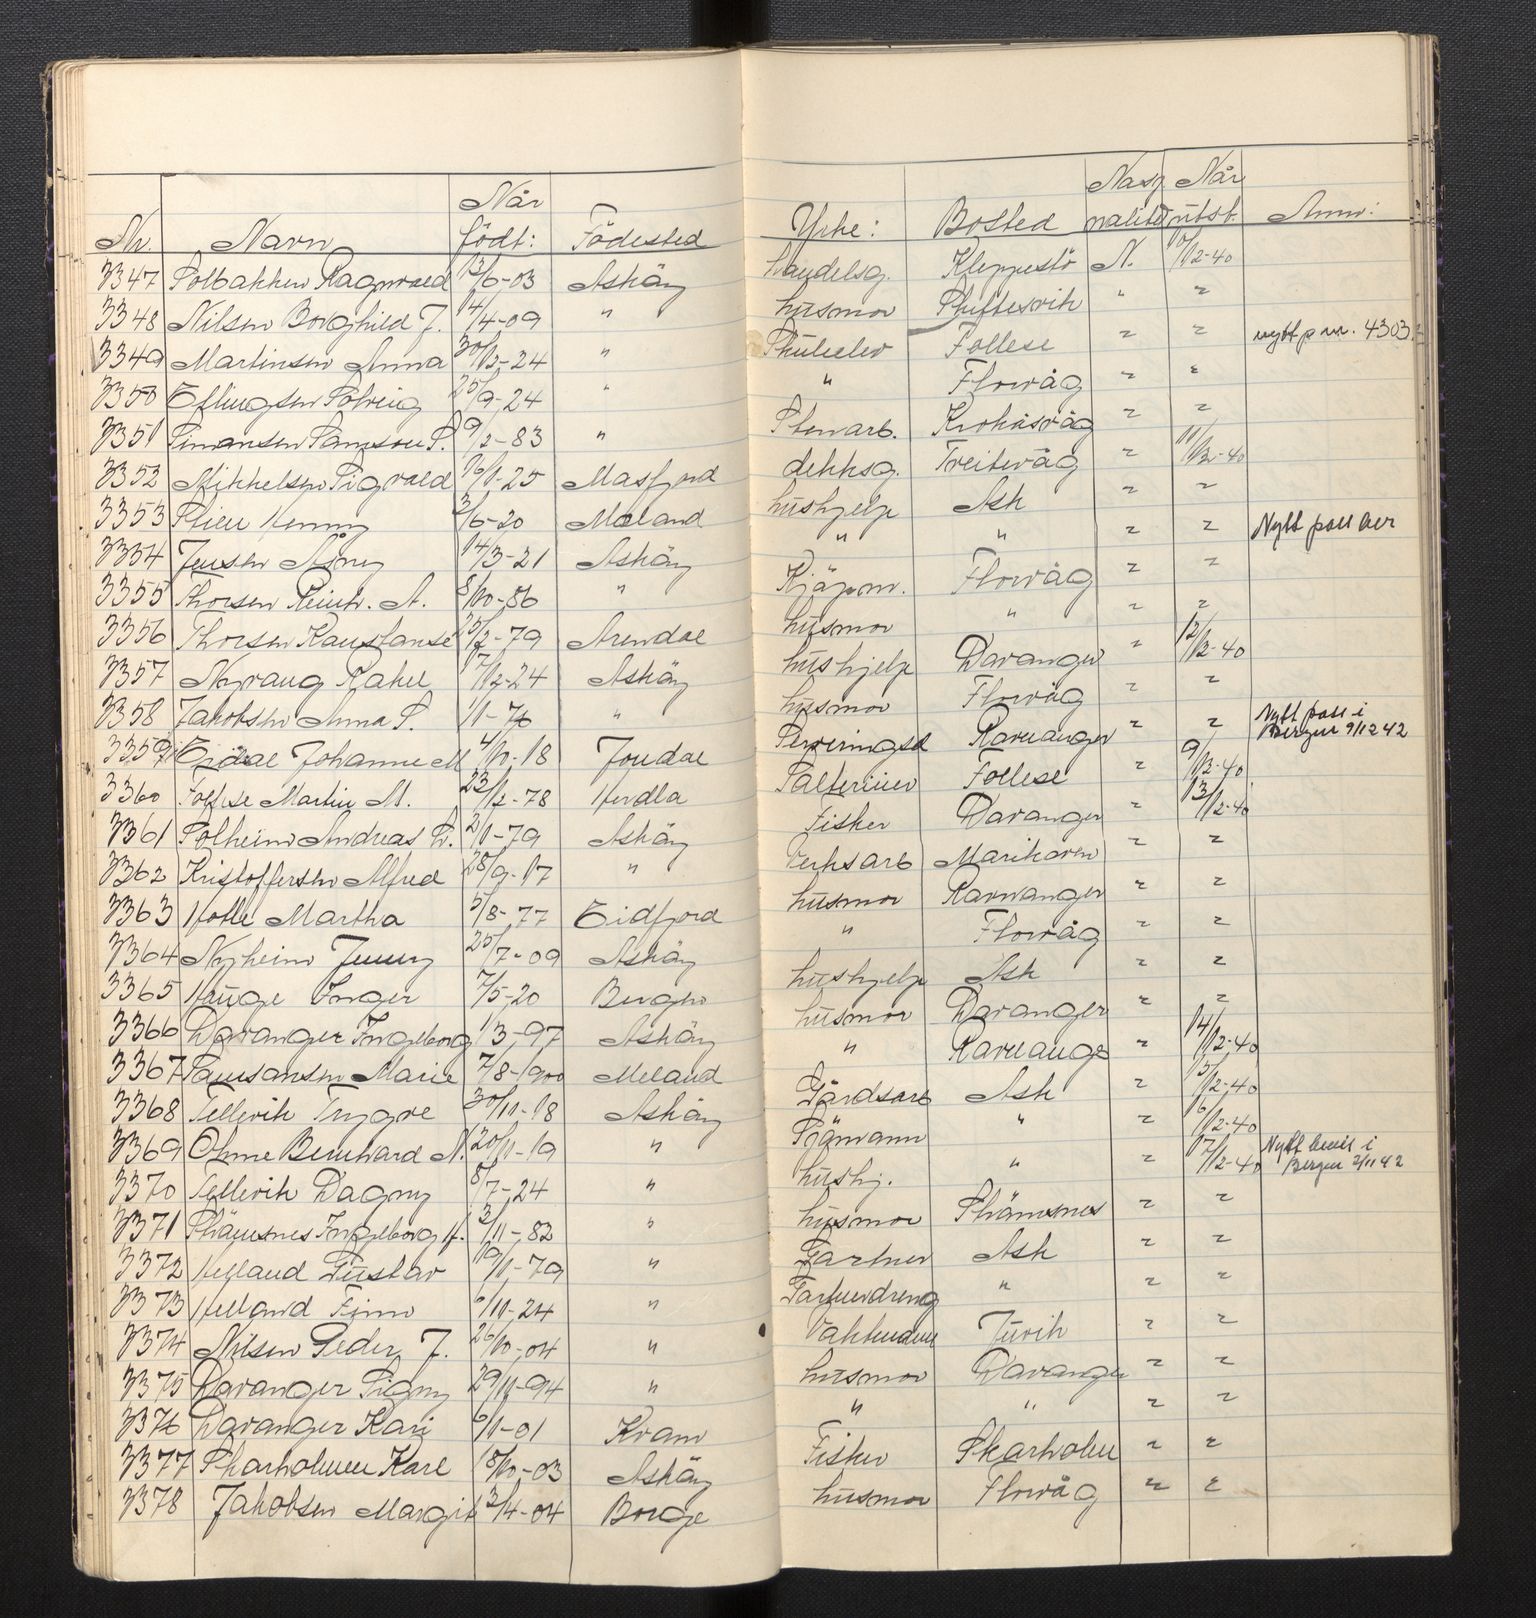 Når Nasj. Når
Nr. Navn født: Födested Yrke: Bosted nalitet utst. Anm:
3347 Solbakken Ragnvald 13/6-03 Asköy handelsg. Kleppestö N. 10/12-40
3348 Nilsen Borghild J. 14/4-09 " husmor Skiftesvik " "
3349 Martinsen Anna 30/12-24 " Skuleelev Follese " " nytt p nr. 4303
3350 Ellingsen Solveig 25/9-24 " " Florvåg " "
3351 Simonsen Samson S. 9/2-83 " Stenarb. Krokåsvåg " "
3352 Mikkelsen Sigvald 16/1-25 Masfjord dekksg. Breitevåg " 11/12-40
3353 Henny 3/6-20 Meland hushjelp Ask " "
3354 Jensen Åsny 14/3-21 Asköy " " " " Nytt pass
3355 Thorsen Reinh. A. 8/10-86 " Kjöpm. Florvåg " "
3356 Thorsen Konstanse 25/2-79 Arendal husmor " " "
3357 Rakel 17/12-24 Asköy hushjelp Davanger " 12/12-40
3358 Jakobsen Anna S. 1/1-76 " husmor Florvåg " "
3359 Eidae Johanne M 4/10-18 Jondal Serveringsd Ravnanger " " Nytt pass i Bergen 9/12 42
3360 Follese Martin M. 23/12-78 Herdla Follese " 9/12-40
3361 Solheim Andreas 2/1-79 Asköy Fisker Davanger " 13/12-40
3362 Kristoffersen Alfred 28/9-17 " Verksarb Marikoven " "
3363 Holle Martha 5/8-77 Eidfjord husmor Ravnanger " "
3364 Nyheim Jenny 25/7-09 Asköy " Florvåg " "
3365 Hauge Inger 7/5-20 Bergen hushjelp Ask " "
3366 Davanger Ingeborg 1/3-97 Asköy husmor Davanger " "
3367 Samsonsen Marie 7/8-1900 Meland " Ravnanger " 14/12-40
3368 Tellevik Trygve 30/11-18 Asköy Gårdsarb Ask " 15/12-40
3369 Ohme Bernhard N. 20/11-19 " Sjömann " " 16/12-40
3370 Tellevik Dagny 8/7-24 " hushj. " " 17/12-40 Nytt bevis i Bergen 2/11 42
3371 Skåmsnes Ingeborg H. 3/11-82 " husmor Skråmsnes " "
3372 Helland Gustav 19/1-79 " Gartner Ask " "
3373 Helland Finn 6/10-24 " " " "
3374 Nilsen Peder J. 26/10-04 " Juvik " "
3375 Davanger Signy 29/10-94 " husmor Davanger " "
3376 Davanger Kari 6/1-01 Kvam " " " "
3377 Skarholmen Karl 18/10-03 Asköy Fisker Skarholm " "
3378 Jakobsen Margit 13/4-04 Borge husmor Florvåg " "